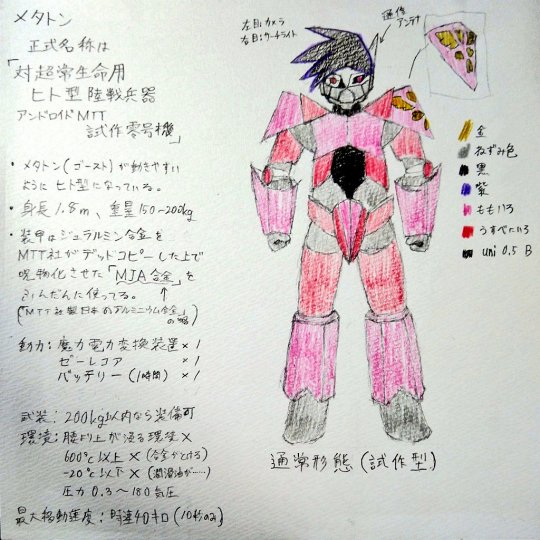 メタトン
正式名称は
「対超常生命用
ヒト型陸戦兵器
アンドロイドMTT
試作零号機」
・メタトン(ゴースト)が動きやすい
ようにヒト型になっている。
・身長1.8m、重量150~200kg
・装甲はジュラルミン合金を
MTT社がデッドコピーした上で
呪物化させた「MJA合金」を
ふんだんに使ってる。↑
(「MTT社製日本のアルミニウム合金」
の略)
動力:魔力電力変換装置×1
ゼーレコア ×1
バッテリー(1時間) ×1
武装:200kg以内なら装備可
環境:腰より上が浸る環境×
600℃以上×(合金がとける)
-20℃以下×(潤滑油が……)
圧力0.3~180気圧
最大移動速度:時速40キロ(10秒のみ)
左目:カメラ
右目:サーチライト
通信
アンテナ
金
ねずみ色
黒
紫
ももいろ
うすべにいろ
uni 0.5 B
通常形態(試作型)